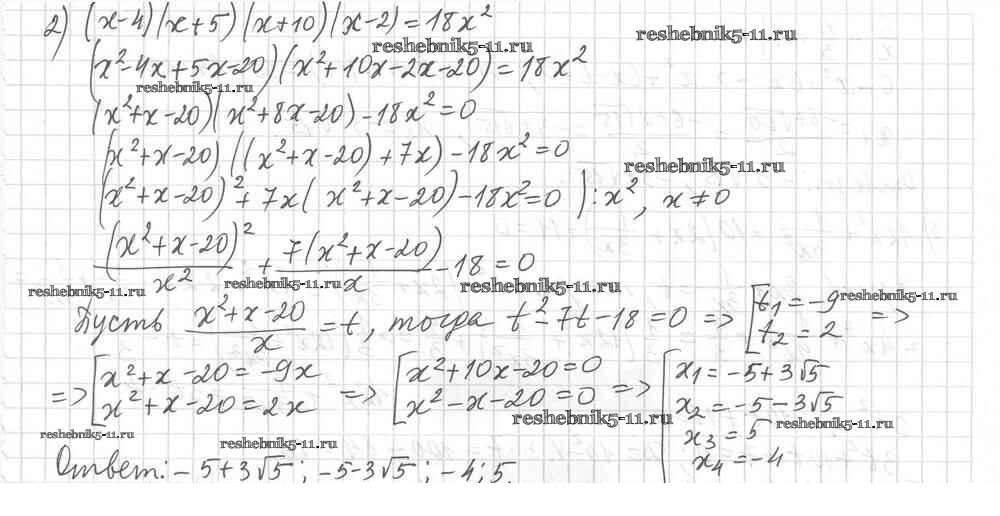 2) (x-4)(x+5)(x+10)(x-2)=18x²
reshebnik5-11.ru
reshebnik5-11.ru
(x²-4x+5x-20)(x²+10x-2x-20)=18x²
reshebnik5-11.ru
(x²+x-20)(x²+8x-20)-18x²=0
(x²+x-20)((x²+x-20)+7x)-18x²=0
reshebnik5-11.ru
(x²+x-20)²+7x(x²+x-20)-18x²=0):x², x≠0
(x²+x-20)²/x² + 7(x²+x-20)/x - 18=0
reshebnik5-11.ru
reshebnik5-11.ru
reshebnik5-11.ru
reshebnik5-11.ru
Пусть (x²+x-20)/x = t, тогда t²-7t-18=0 => [t₁=-9 =>
t₂=2
=> [x²+x-20=-9x => [x²+10x-20=0 => [x₁=-5+3√5
x²+x-20=2x x²-x-20=0 x₂=-5-3√5
reshebnik5-11.ru
reshebnik5-11.ru
x₃=5
reshebnik5-11.ru
reshebnik5-11.ru
x₄=-4
Ответ: -5+3√5; -5-3√5; -4; 5.